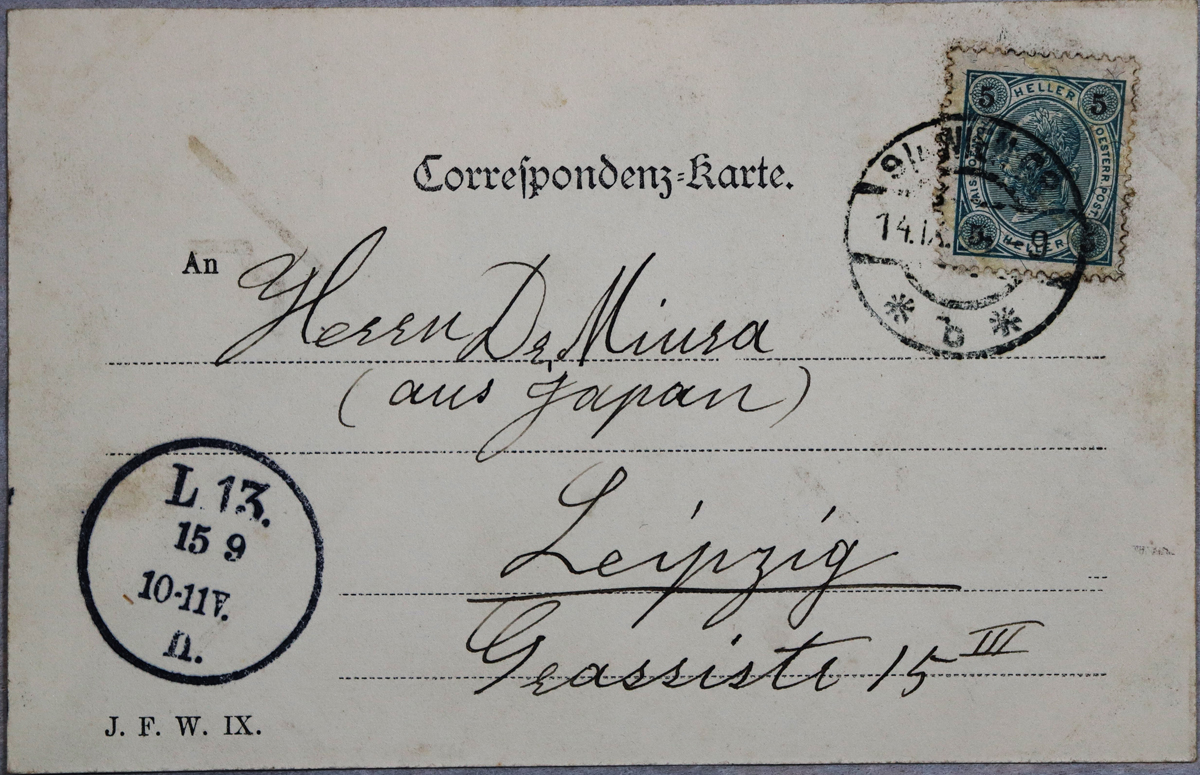 5 HELLER 5
OESTERR. POST
5 HELLER 5
Correspondenz-Karte.
WIEN
14.IX. 9
b
An
Herrn Dr Miura
(aus Japan)
L 13.
15 9
10-11V.
n.
Leipzig
Grassistr 15 III
J. F. W. IX.